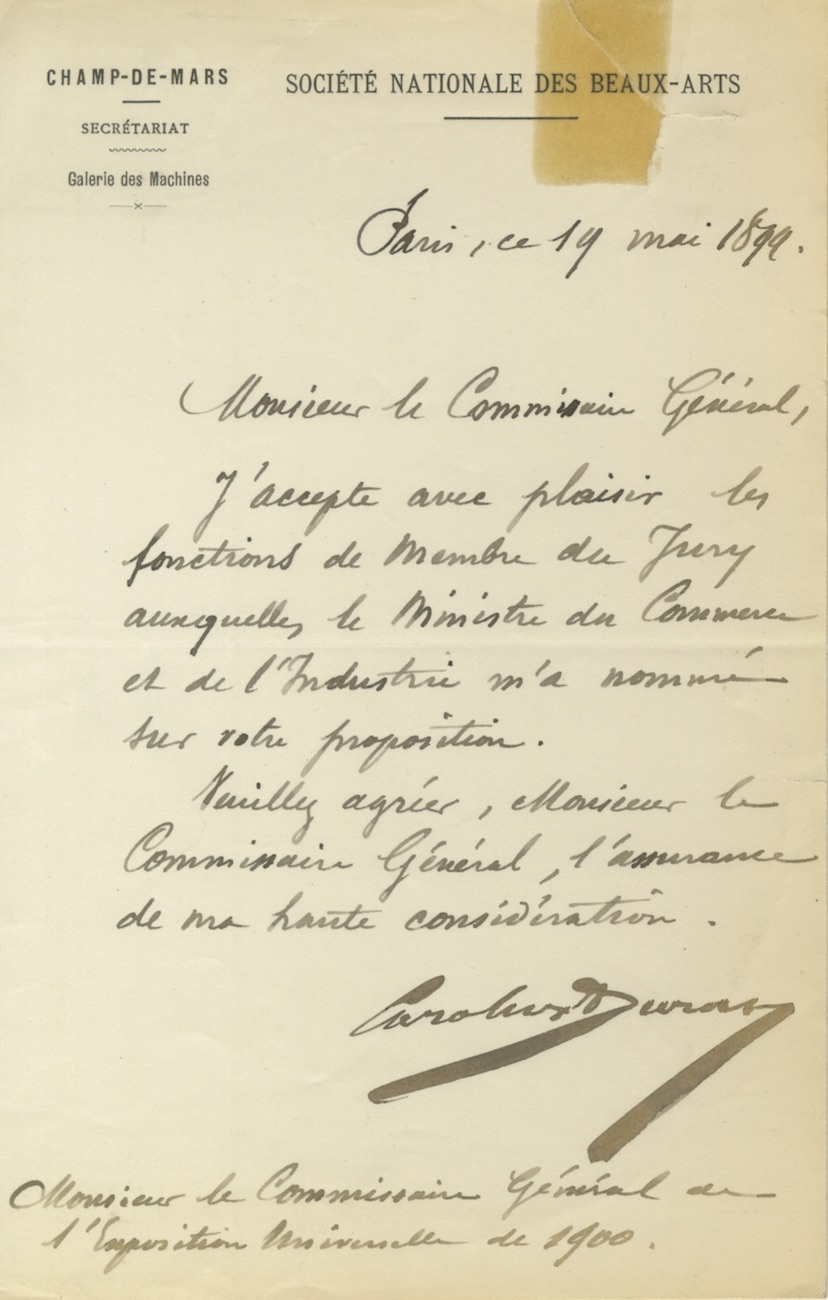 CHAMP-DE-MARS
SECRÉTARIAT
Galerie des Machines
SOCIÉTÉ NATIONALE DES BEAUX-ARTS
Paris, ce 19 mai 1899.
Monsieur le Commissaire Général,
J'accepte avec plaisir les
fonctions de Membre du Jury
auxquelles le Ministre du Commerce
et de l'Industrie m'a nommé
sur votre proposition.
Veuillez agréer, Monsieur le
Commissaire Général, l'assurance
de ma haute considération.
Carolus Duran
Monsieur le Commissaire Général de
l'Exposition Universelle de 1900.